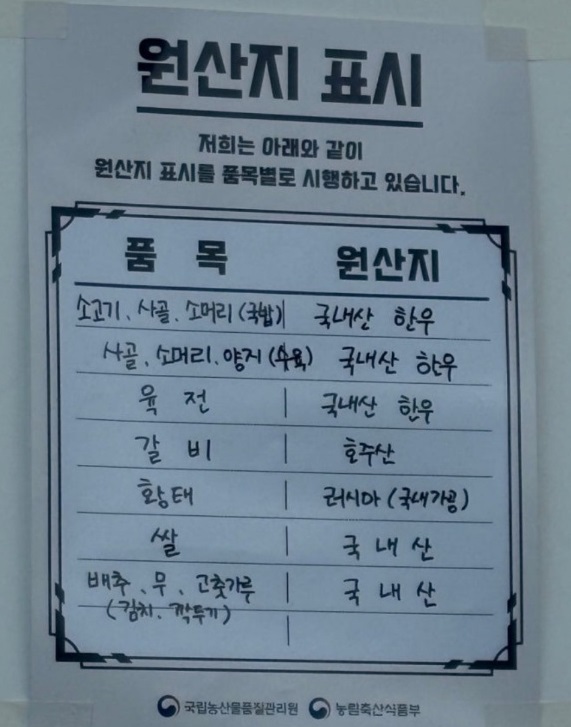 원산지 표시
저희는 아래와 같이
원산지 표시를 품목별로 시행하고 있습니다.
품 목 원산지
소고기. 사골. 소머리(국밥) 국내산 한우
사골. 소머리. 양지(수육) 국내산 한우
육 전 국내산 한우
갈 비 호주산
황태 러시아(국내가공)
쌀 국 내 산
배추. 무. 고춧가루 국 내 산
(김치. 깍두기)
국립농산물품질관리원 농림축산식품부